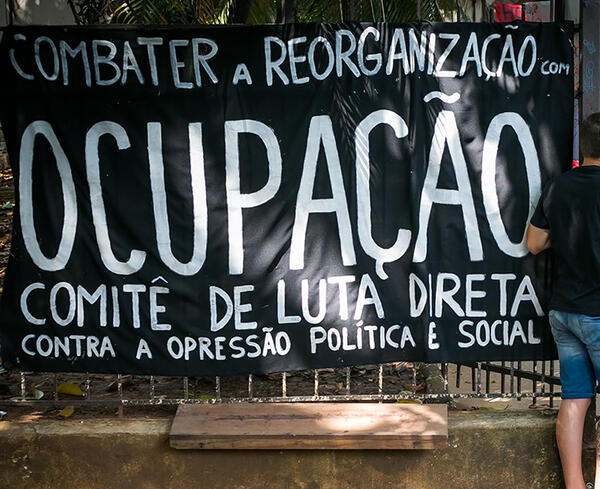 COMBATER A REORGANIZAÇÃO COM
OCUPAÇÃO
COMITÊ DE LUTA DIRETA
CONTRA A OPRESSÃO POLÍTICA E SOCIAL